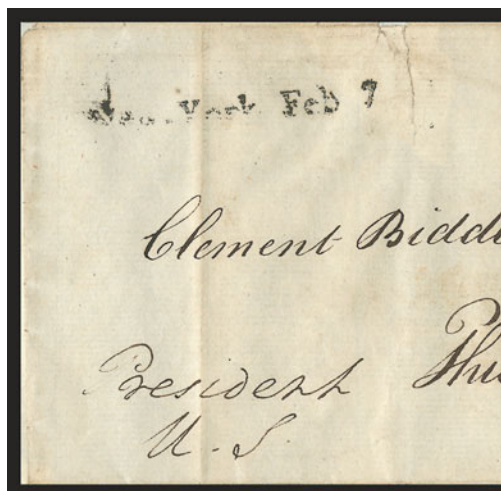 New York Feb 7
Clement Bidd
President
U. S.